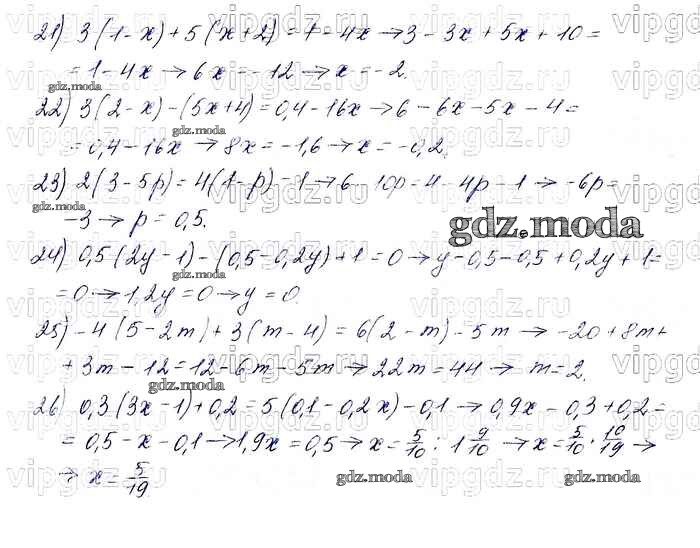 21) 3(1-x)+5(x+2)=1-4x→3-3x+5x+10=
=1-4x→6x=-12→x=-2.
22) 3(2-x)-(5x+4)=0,4-16x→6-6x-5x-4=
=0,4-16x→8x=-1,6→x=-0,2.
23) 2(3-5p)=4(1-p)-1→6-10p=4-4p-1→-6p=
-3→p=0,5.
24) 0,5(2y-1)-(0,5-0,2y)+1=0→y-0,5-0,5+0,2y+1=
=0→1,2y=0→y=0.
25) -4(5-2m)+3(m-4)=6(2-m)-5m→-20+8m+
+3m-12=12-6m-5m→22m=44→m=2.
26) 0,3(3x-1)+0,2=5(0,1-0,2x)-0,1→0,9x-0,3+0,2=
=0,5-x-0,1→1,9x=0,5→x=5/10:1 9/10→x=5/10·10/19→
→x=5/19
gdz.moda
gdz.moda
gdz.moda
gdz.moda
gdz.moda
gdz.moda
gdz.moda
vipgdz.ru